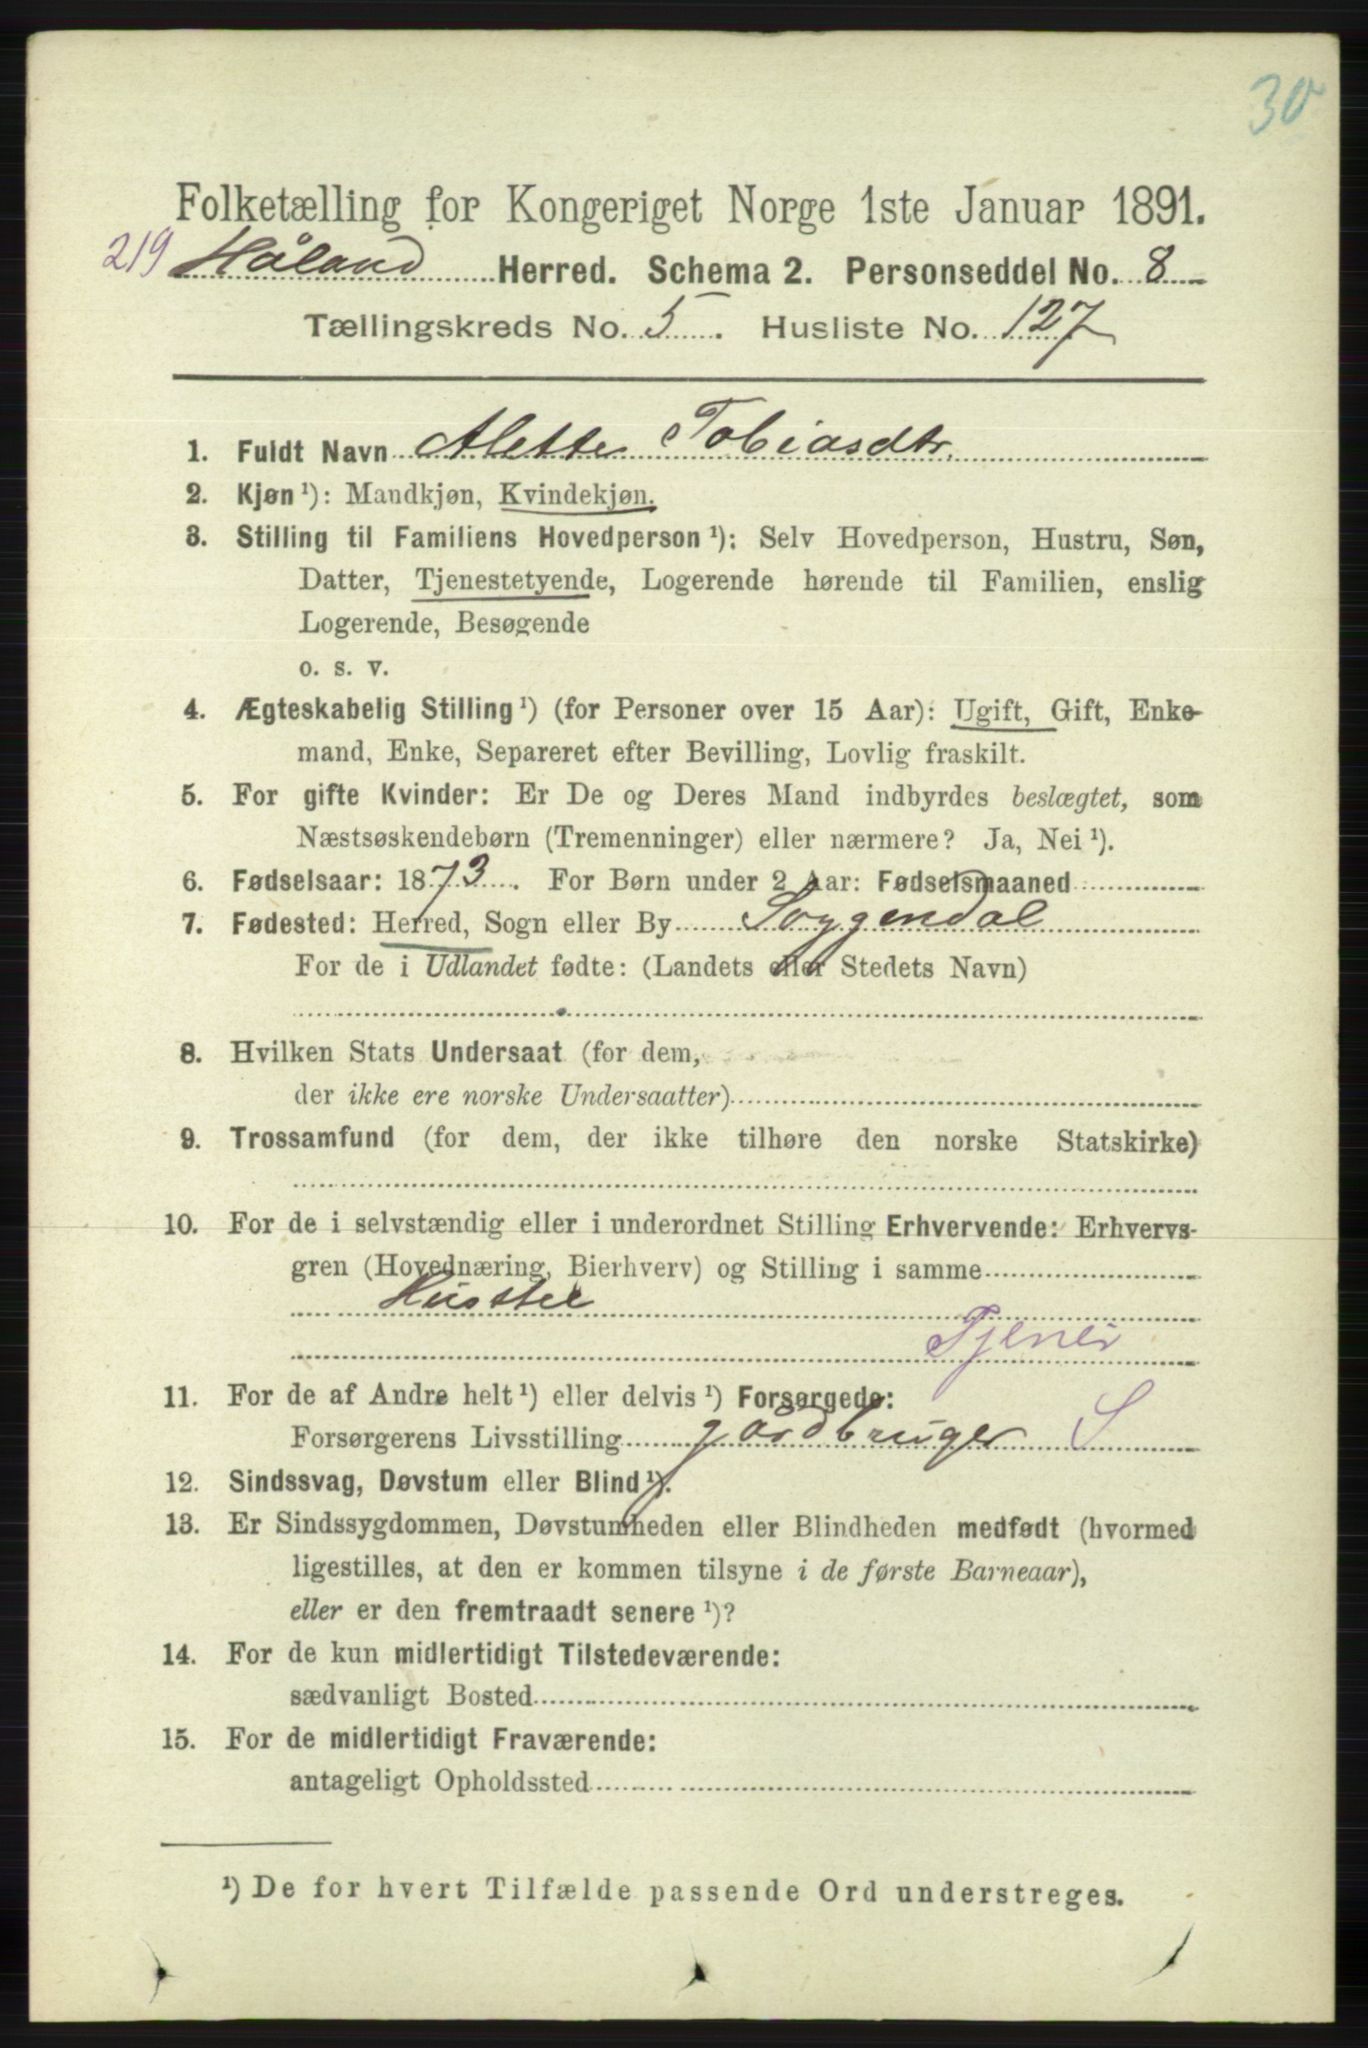 30
Folketælling for Kongeriget Norge 1ste Januar 1891.
219 Håland Herred. Schema 2. Personseddel No. 8
Tællingskreds No. 5. Husliste No. 127
1. Fuldt Navn Alette Tobiasdtr.
2. Kjøn ¹): Mandkjøn, Kvindekjøn.
3. Stilling til Familiens Hovedperson ¹): Selv Hovedperson, Hustru, Søn,
Datter, Tjenestetyende, Logerende hørende til Familien, enslig
Logerende, Besøgende
o. s. v.
4. Ægteskabelig Stilling ¹) (for Personer over 15 Aar): Ugift, Gift, Enke-
mand, Enke, Separeret efter Bevilling, Lovlig fraskilt.
5. For gifte Kvinder: Er De og Deres Mand indbyrdes beslægtet, som
Næstsøskendebørn (Tremenninger) eller nærmere? Ja, Nei ¹).
6. Fødselsaar: 1873. For Børn under 2 Aar: Fødselsmaaned
7. Fødested: Herred, Sogn eller By Soggendal
For de i Udlandet fødte: (Landets eller Stedets Navn)
8. Hvilken Stats Undersaat (for dem,
der ikke ere norske Undersaatter)
9. Trossamfund (for dem, der ikke tilhøre den norske Statskirke)
10. For de i selvstændig eller i underordnet Stilling Erhvervende: Erhvervs-
gren (Hovednæring, Bierhverv) og Stilling i samme
Husstel
Tjener
11. For de af Andre helt ¹) eller delvis ¹) Forsørgede:
Forsørgerens Livsstilling gårdbruger S
12. Sindssvag, Døvstum eller Blind ¹).
13. Er Sindssygdommen, Døvstumheden eller Blindheden medfødt (hvormed
ligestilles, at den er kommen tilsyne i de første Barneaar),
eller er den fremtraadt senere ¹)?
14. For de kun midlertidigt Tilstedeværende:
sædvanligt Bosted
15. For de midlertidigt Fraværende:
antageligt Opholdssted
¹) De for hvert Tilfælde passende Ord understreges.